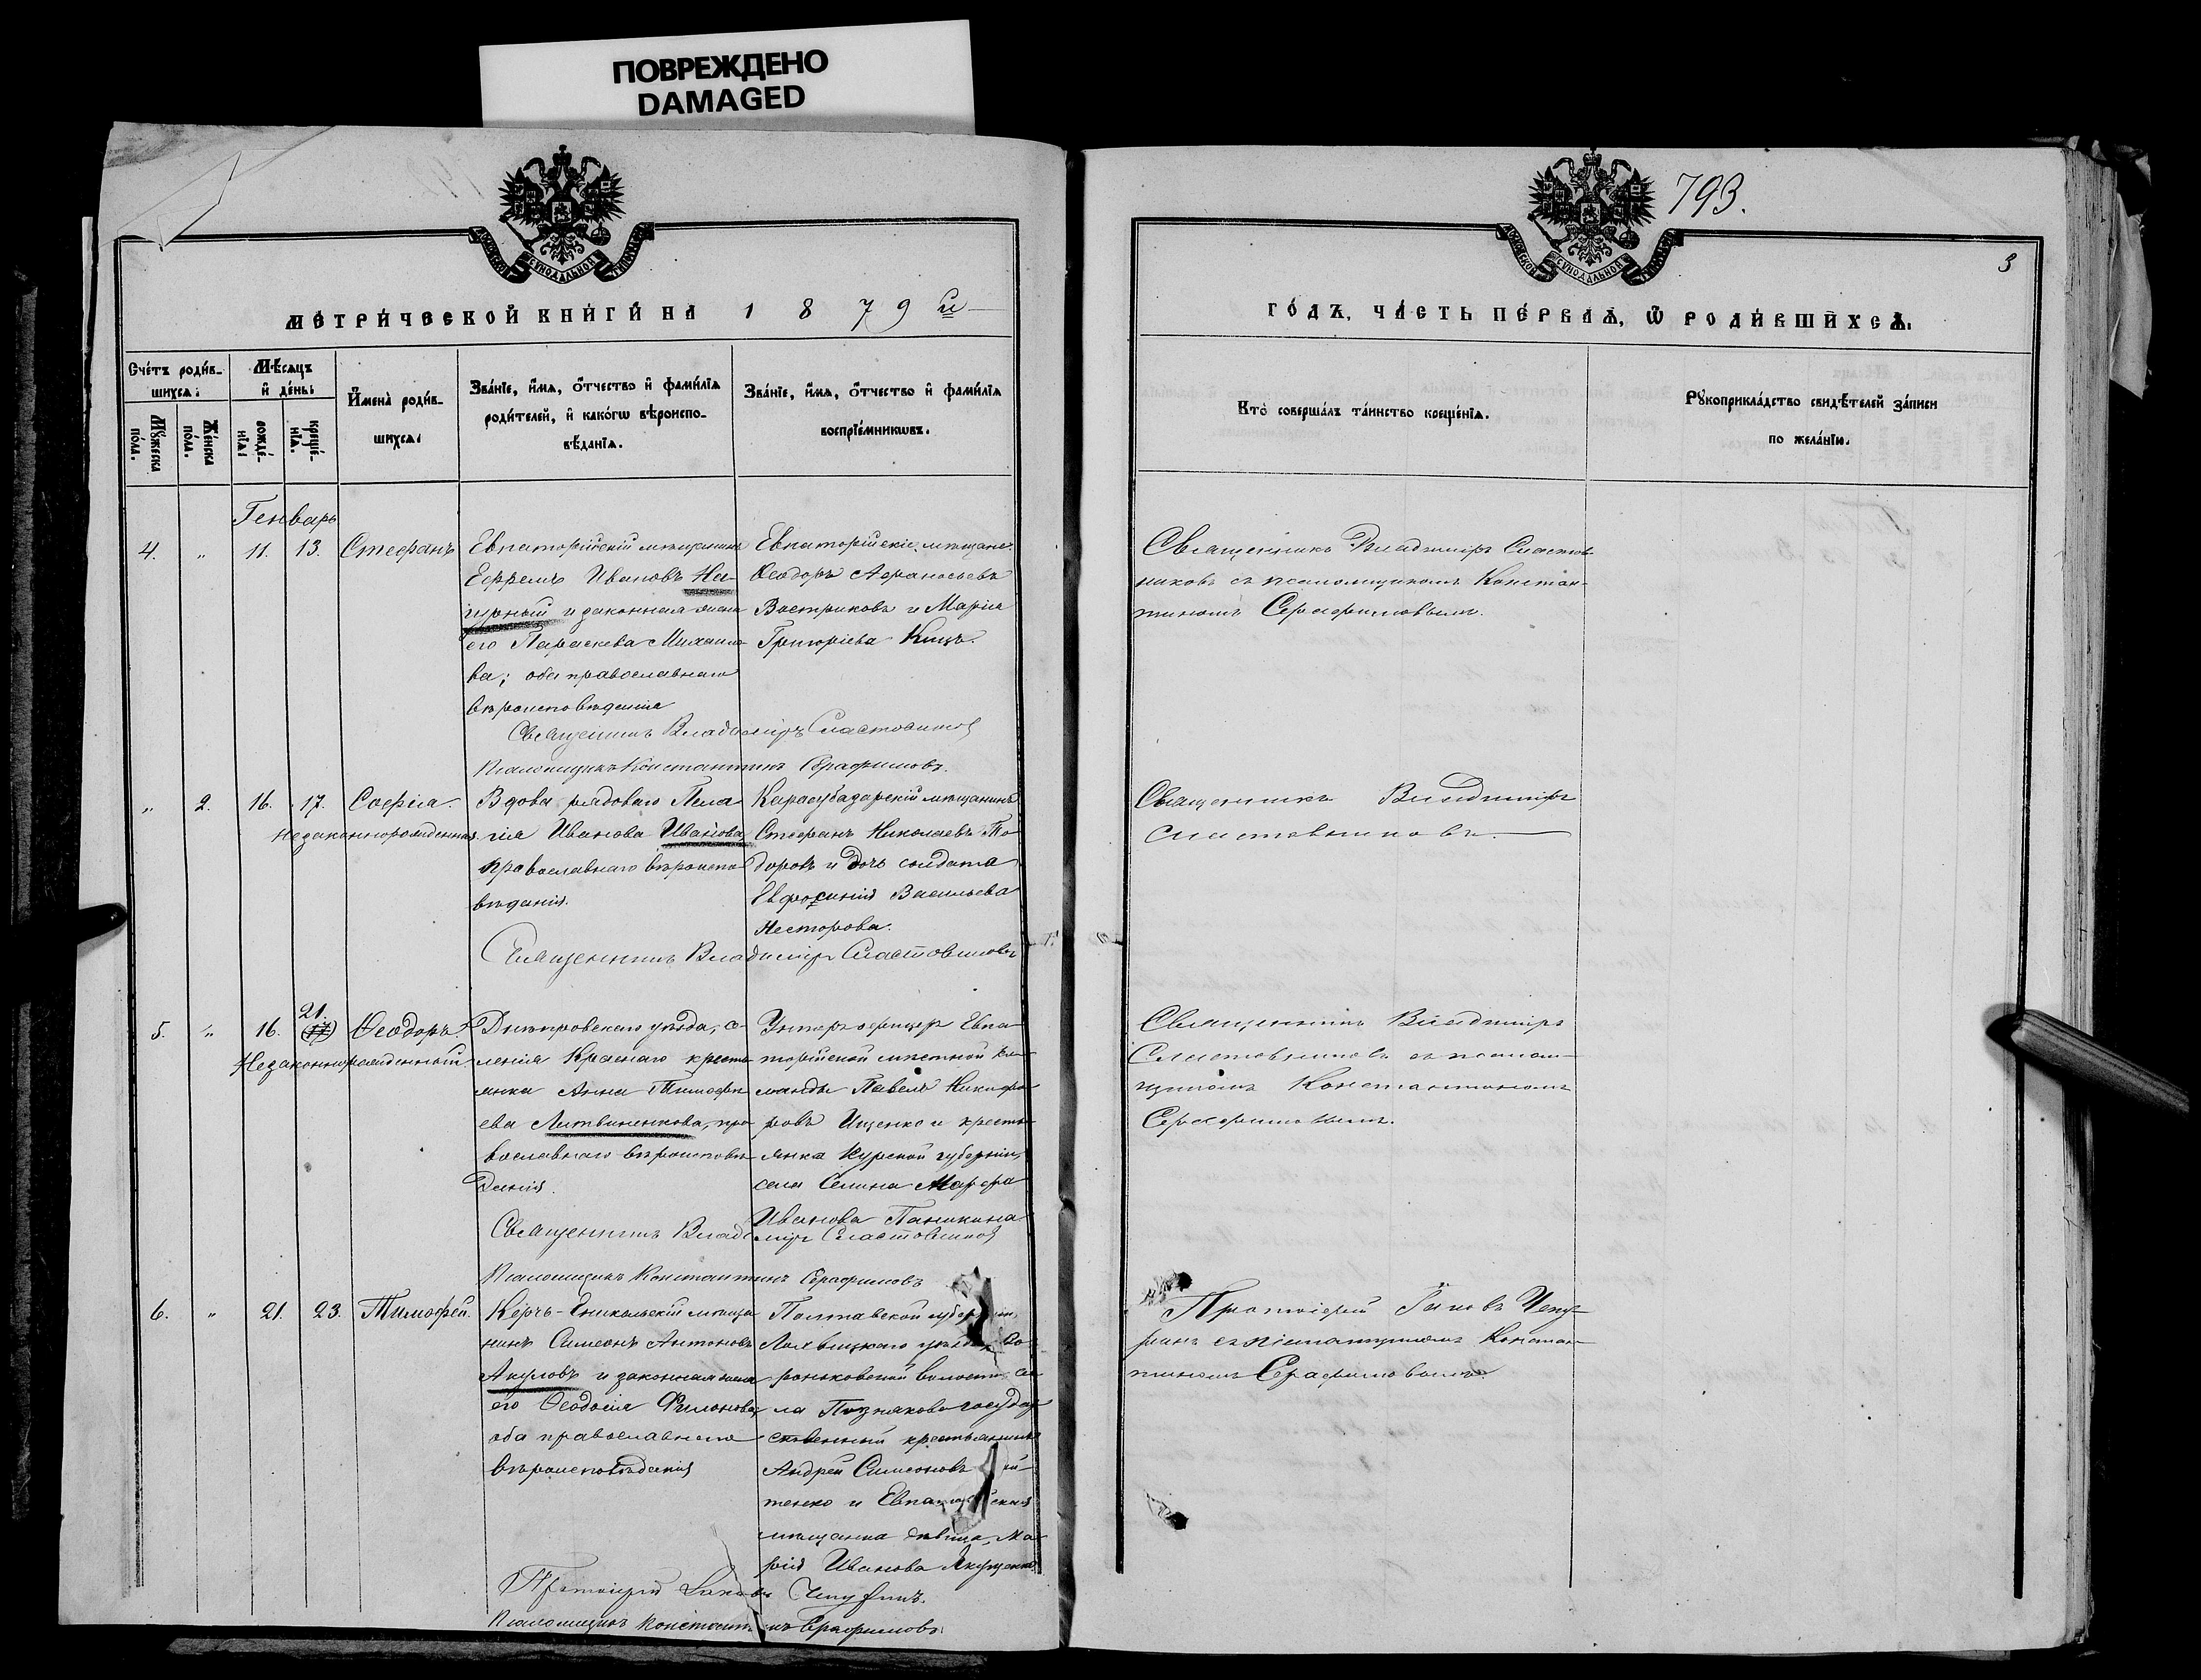 ПОВРЕЖДЕНО
DAMAGED
793.
3
МЕТРИЧЕСКОЙ КНИГИ НА 1879 й
ГОДЪ, ЧАСТЬ ПЕРВАЯ, Ѿ РОДИВШИХСЯ.
Счетъ родив-
шихся:
Мужеска
пола.
Женска
пола.
Мѣсяцъ
и день:
рожде-
нїя:
креще-
нїя.
Имена родив-
шихся:
Званїе, имя, отчество и фамилїя
родителей, и какогѡ вѣроиспо-
вѣданїя.
Званїе, имя, отчество и фамилїя
воспрїемникѡвъ.
Кто совершалъ таинство крещенїя.
Рукоприкладство свидѣтелей записи
по желанїю.
Генварь
4.
"
11.
13.
Стефанъ
Евпаторійскій мѣщанинъ
Ефремъ Ивановъ На-
гурный и законная жена
его Параскева Михаило-
ва; оба православнаго
вѣроисповѣданія
Евпаторійскіе мѣщане:
Ѳеодоръ Аѳанасьевъ
Востриковъ и Марія
Григоріева Кицъ.
Священникъ Владиміръ Сластов-
никовъ съ псаломщикомъ Констан-
тиномъ Серафимовымъ.
Священникъ Владиміръ Сластовников
Псаломщикъ Константинъ Серафимовъ.
"
2.
16.
17.
Софіа.
незаконнорожденная.
Вдова рядоваго Пела-
гія Иванова Иванова
православнаго вѣроиспо-
вѣданія.
Карасубазарскій мѣщанинъ
Стефанъ Николаевъ То-
доровъ и дочь солдата
Евфросинія Васильева
Несторова.
Священникъ Владиміръ
Сластовниковъ.
Священникъ Владиміръ Сластовниковъ
5.
"
16.
21.
(17)
Ѳеодоръ
Незаконнорожденный.
Днѣпровскаго уѣзда, се-
ленія Краснаго кресть-
янка Анна Тимоѳе-
ева Литвиненкова, пра-
вославнаго вѣроисповѣ-
данія.
Унтеръ офицеръ Евпа-
торійской мѣстной ко-
манды Павелъ Никифо-
ровъ Ищенко и кресть-
янка Курской губерніи,
села Селина Марфа
Иванова Паникина
Священникъ Владиміръ
Сластовниковъ съ псалом-
щикомъ Константиномъ
Серафимовымъ.
Священникъ Владиміръ Сластовников
Псаломщикъ Константинъ Серафимовъ
6.
"
21.
23.
Тимофей.
Керчь-Еникольскій мѣща-
нинъ Симеонъ Антоновъ
Акуловъ и законная жена
его Ѳеодосія Филонова,
оба православнаго
вѣроисповѣданія
Полтавской губерніи,
Лохвицкаго уѣзда,
роньковской волости, се-
ла Познякова государ-
ственный крестьянинъ
Андрей Симеоновъ
тенко и Евпаторійская
мѣщанка дѣвица, Ма-
рія Иванова Якущенко.
Протоіерей Іаковъ Чепу-
ринъ съ псаломщикомъ Констан-
тиномъ Серафимовымъ.
Протоіерей Іаковъ Чепуринъ.
Псаломщикъ Константинъ Серафимовъ.